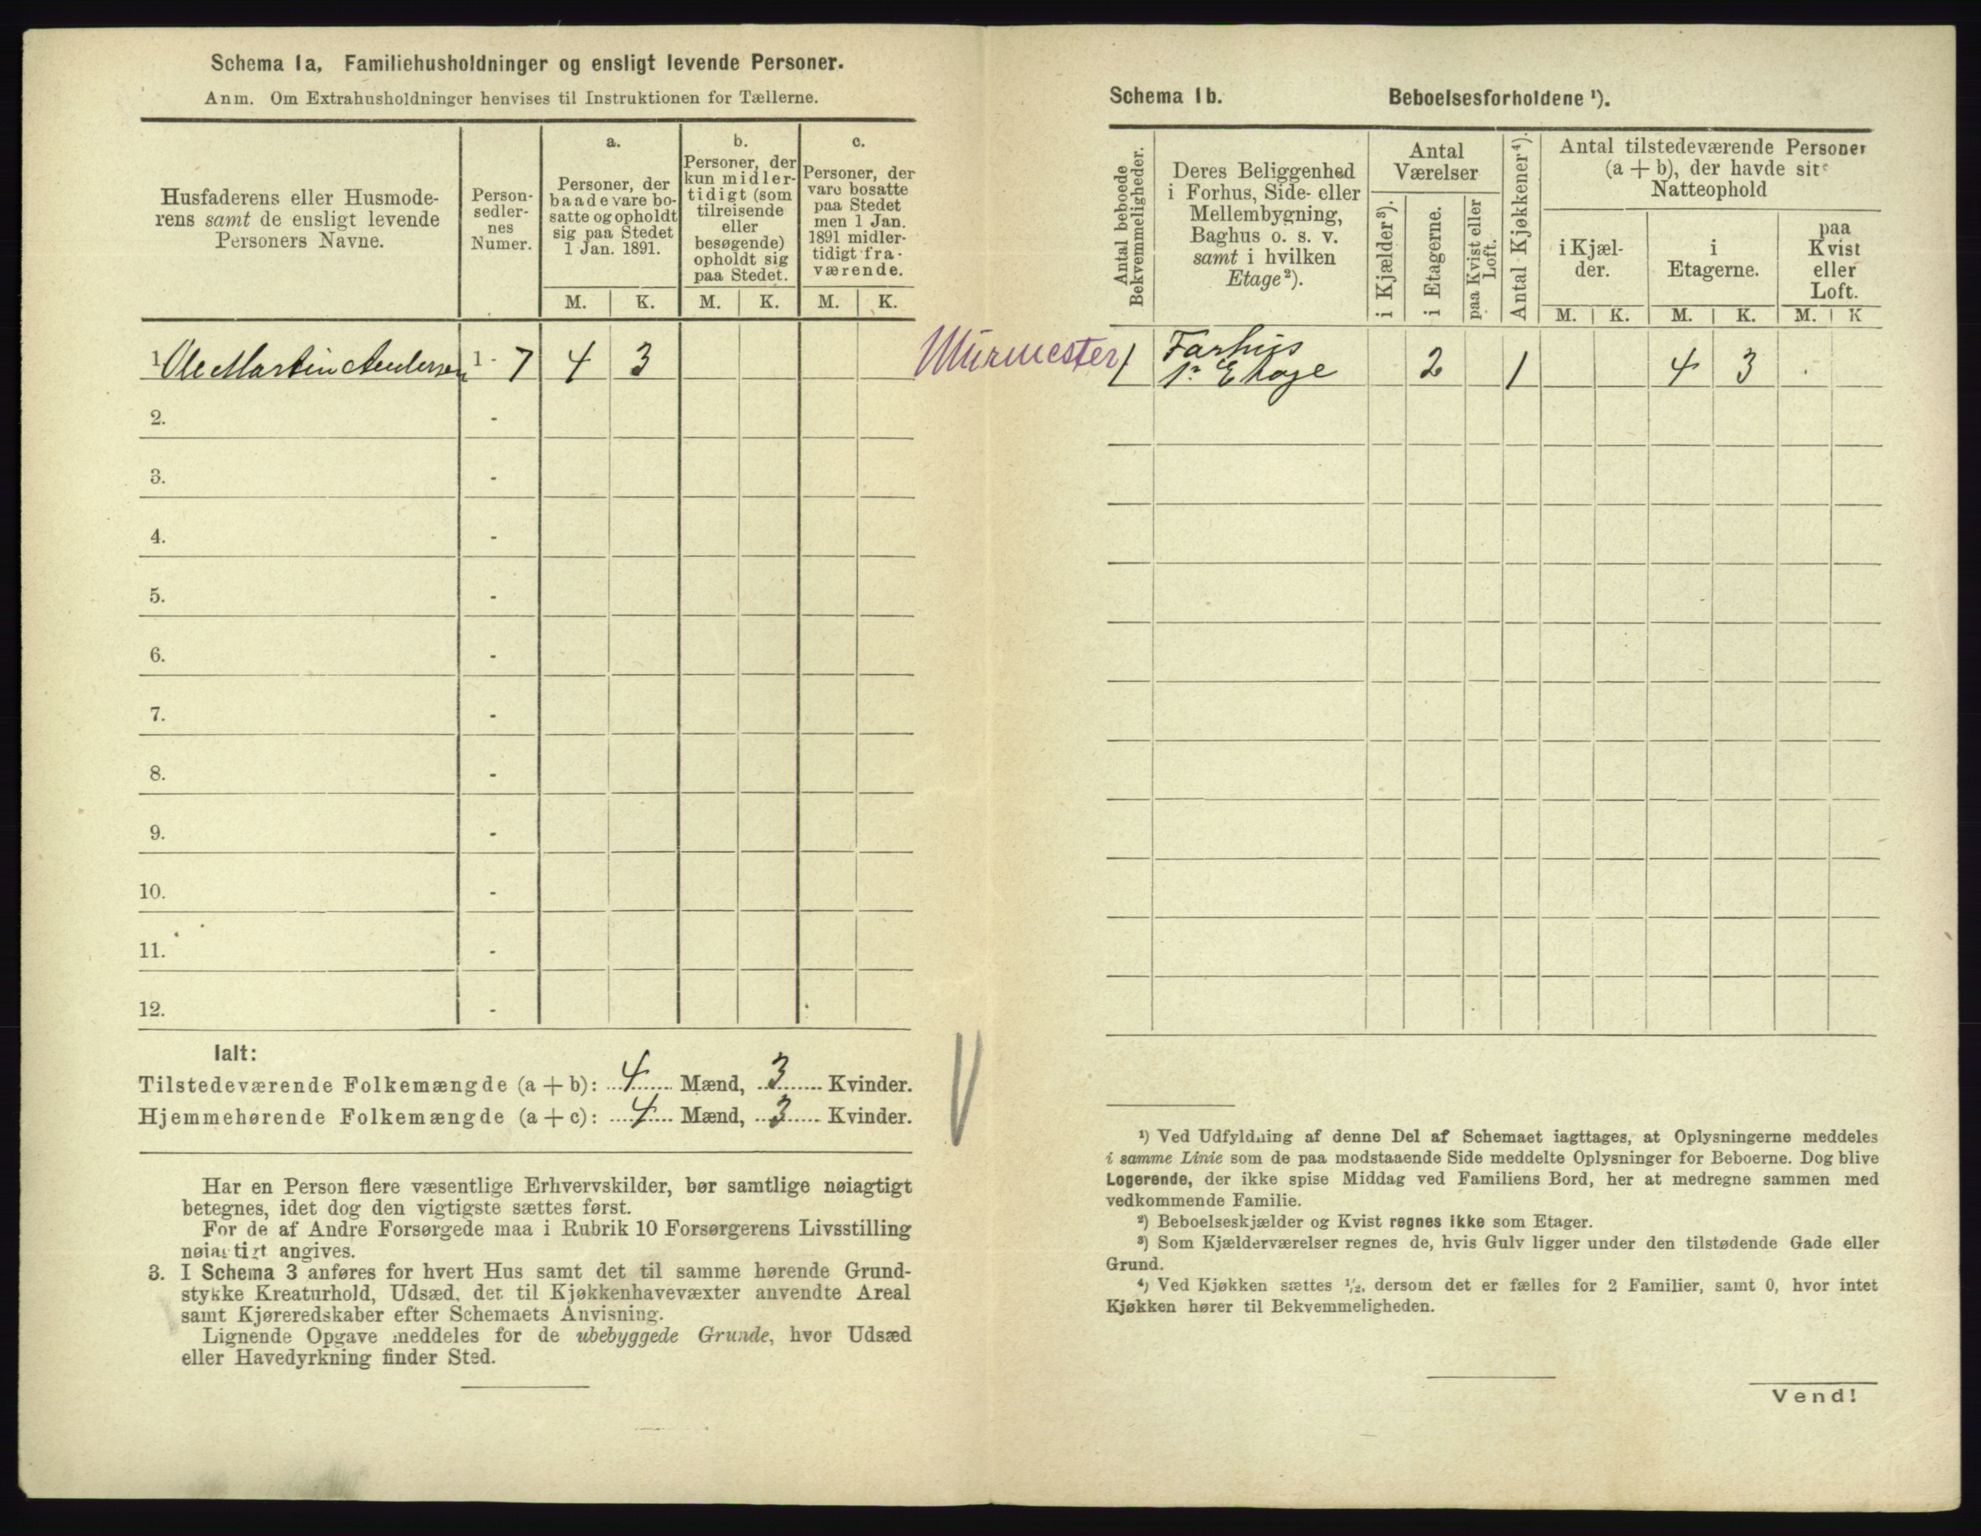 Schema 1a, Familiehusholdninger og ensligt levende Personer.
Anm. Om Extrahusholdninger henvises til Instruktionen for Tællerne.
Husfaderens eller Husmoderens samt de ensligt levende Personers Navne.
Personsedlernes Numer.
a.
Personer, der baade vare bosatte og opholdt sig paa Stedet 1 Jan. 1891.
b.
Personer, der kun midlertidigt (som tilreisende eller besøgende) opholdt sig paa Stedet.
c.
Personer, der vare bosatte paa Stedet men 1 Jan. 1891 midlertidigt fraværende.
M. K. M. K. M. K.
1 Ole Martin Andersen 1 - 7 4 3
Mürmester
2. -
3. -
4. -
5. -
6. -
7. -
8. -
9. -
10. -
11. -
12. -
Ialt:
Tilstedeværende Folkemængde (a + b): 4 Mænd, 3 Kvinder.
Hjemmehørende Folkemængde (a + c): 4 Mænd, 3 Kvinder.
Har en Person flere væsentlige Erhvervskilder, bør samtlige nøiagtigt
betegnes, idet dog den vigtigste sættes først.
For de af Andre Forsørgede maa i Rubrik 10 Forsørgerens Livsstilling
nøiagtigt angives.
3. I Schema 3 anføres for hvert Hus samt det til samme hørende Grund-
stykke Kreaturhold, Udsæd, det til Kjøkkenhavevæxter anvendte Areal
samt Kjøreredskaber efter Schemaets Anvisning.
Lignende Opgave meddeles for de ubebyggede Grunde, hvor Udsæd
eller Havedyrkning finder Sted.
Schema 1b. Beboelsesforholdene ¹).
Antal beboede Bekvemmeligheder.
Deres Beliggenhed i Forhus, Side- eller Mellembygning, Baghus o. s. v. samt i hvilken Etage²).
Antal Værelser
i Kjælder³).
i Etagerne.
paa Kvist eller Loft.
Antal Kjøkkener⁴).
Antal tilstedeværende Personer (a + b), der havde sit Natteophold
i Kjælder.
i Etagerne.
paa Kvist eller Loft.
M. K. M. K. M. K
1 Forhus 1ˢᵗ Etage 2 1 4 3
¹) Ved Udfyldning af denne Del af Schemaet iagttages, at Oplysningerne meddeles
i samme Linie som de paa modstaaende Side meddelte Oplysninger for Beboerne. Dog blive
Logerende, der ikke spise Middag ved Familiens Bord, her at medregne sammen med
vedkommende Familie.
²) Beboelseskjælder og Kvist regnes ikke som Etager.
³) Som Kjælderværelser regnes de, hvis Gulv ligger under den tilstødende Gade eller
Grund.
⁴) Ved Kjøkken sættes ¹/₂, dersom det er fælles for 2 Familier, samt 0, hvor intet
Kjøkken hører til Bekvemmeligheden.
Vend!